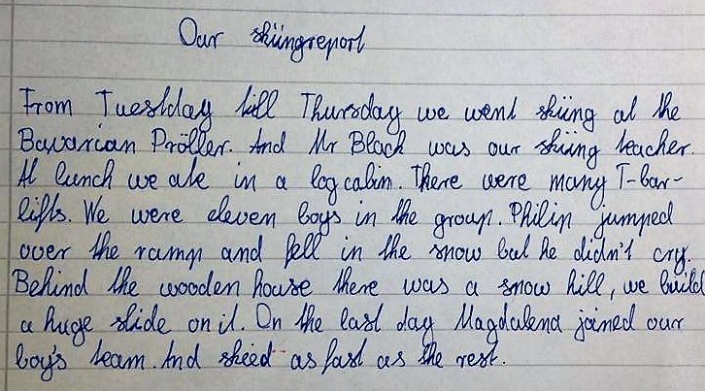 Our skiingreport
From Tuestday till Thursday we went skiing at the
Bavarian Pröller. And Mr Black was our skiing teacher.
At lunch we ate in a log cabin. There were many T-bar-
lifts. We were eleven boys in the group. Philip jumped
over the ramp and fell in the snow but he didn't cry.
Behind the wooden house there was a snow hill, we build
a huge slide on it. On the last day Magdalena joined our
boy's team. And skied as fast as the rest.